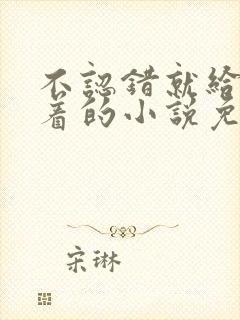 不認錯就給
着的小說免
宋琳